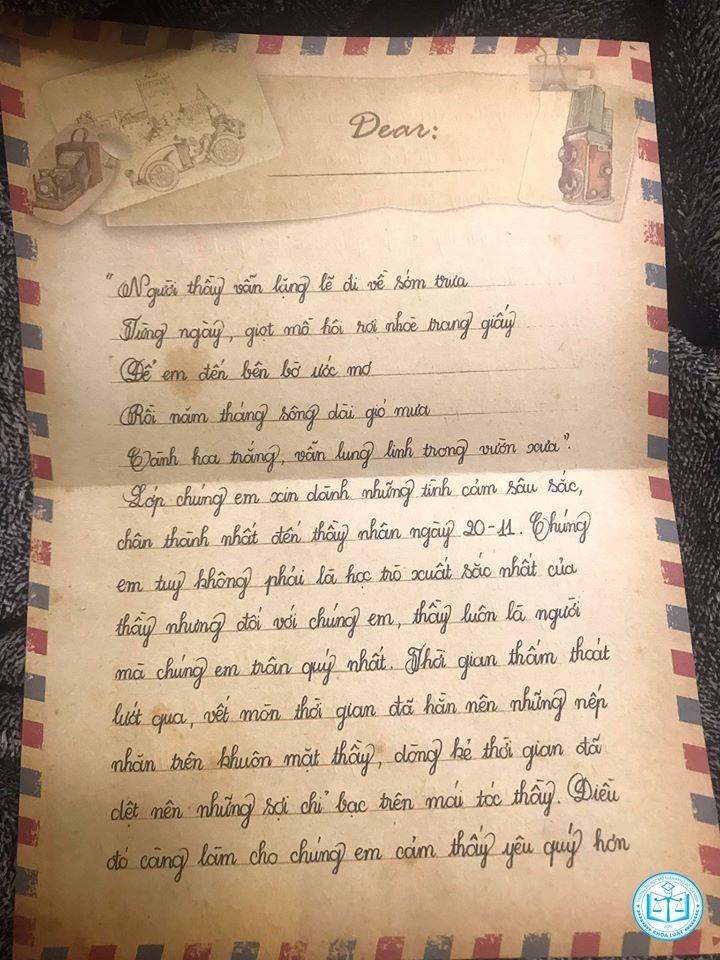 Dear:
"Người thầy vẫn lặng lẽ đi về sớm trưa
Từng ngày, giọt mồ hôi rơi nhoè trang giấy
Để em đến bên bờ ước mơ
Rồi năm tháng sông dài gió mưa
Cành hoa trắng, vẫn lung linh trong vườn xưa".
Lớp chúng em xin dành những tình cảm sâu sắc,
chân thành nhất đến thầy nhân ngày 20-11. Chúng
em tuy không phải là học trò xuất sắc nhất của
thầy nhưng đối với chúng em, thầy luôn là người
mà chúng em trân quý nhất. Thời gian thấm thoát
lướt qua, vết mòn thời gian đã hằn nên những nếp
nhăn trên khuôn mặt thầy, dòng kẻ thời gian đã
dệt nên những sợi chỉ bạc trên mái tóc thầy. Điều
đó càng làm cho chúng em cảm thấy yêu quý hơn
KHOA LUẬT